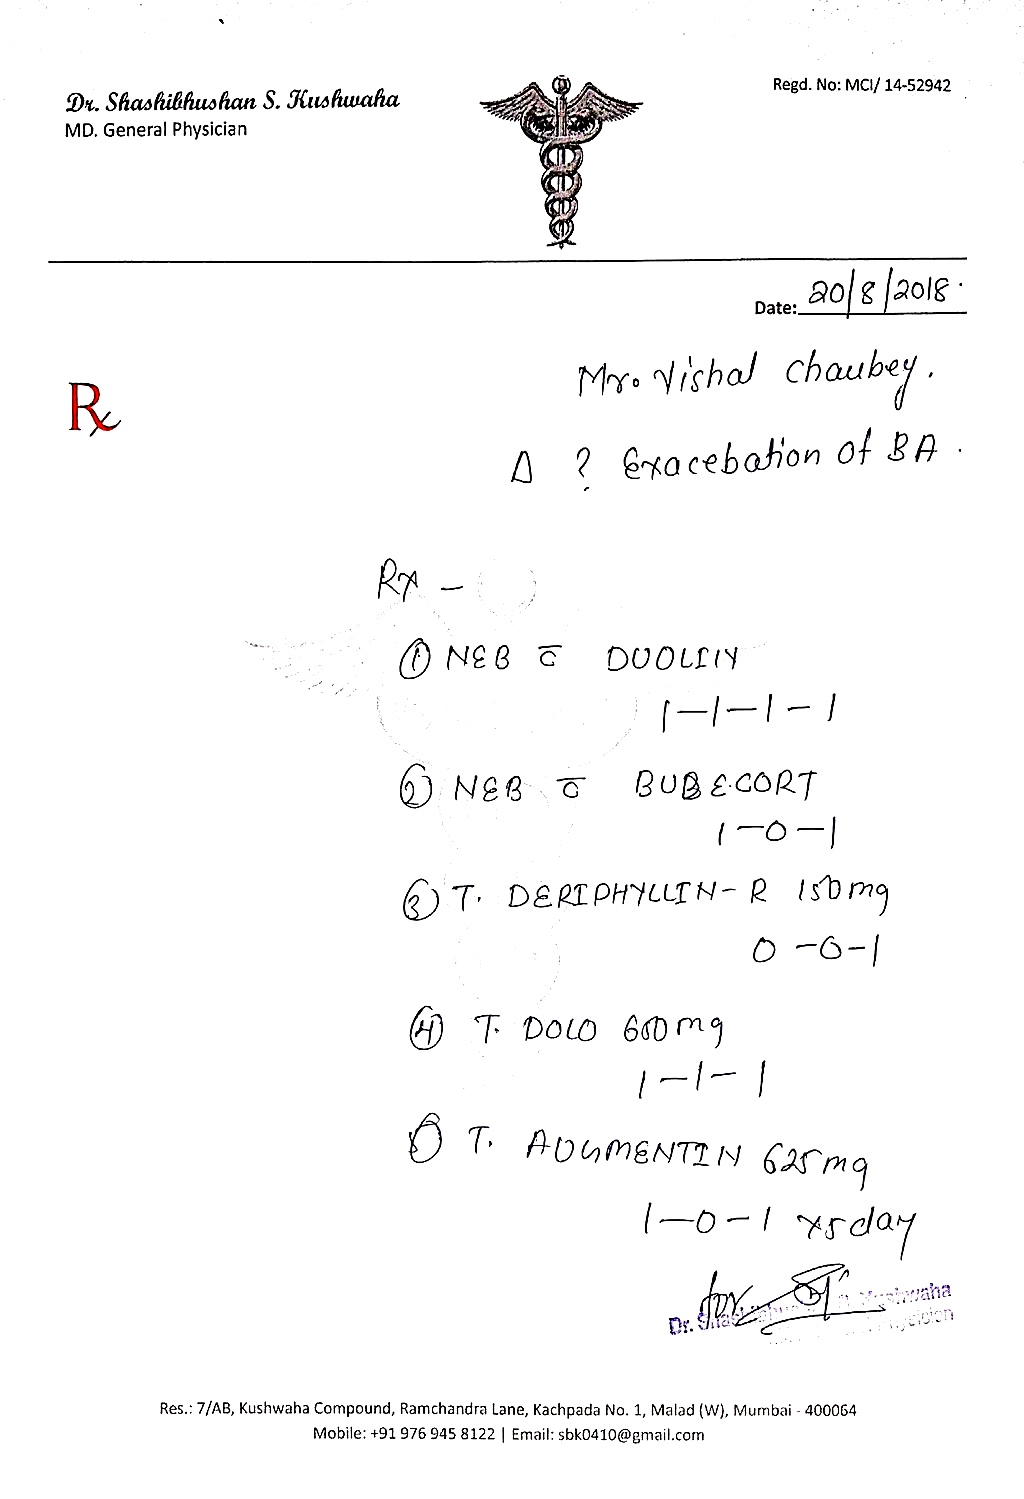 Dr. Shashibhushan S. Kushwaha
MD. General Physician
Regd. No: MCI/ 14-52942
Date: 20/8/2018
Rx
Mr. Vishal Chaubey.
Δ ? Exacebation of BA.
Rx -
① NEB c̄ DUOLIN
1-1-1-1
② NEB c̄ BUDECORT
1-0-1
③ T. DERIPHYLLIN-R 150mg
0-0-1
④ T. DOLO 650mg
1-1-1
⑤ T. AUGMENTIN 625mg
1-0-1 x5day
for
Dr. Kushwaha
Res.: 7/AB, Kushwaha Compound, Ramchandra Lane, Kachpada No. 1, Malad (W), Mumbai - 400064
Mobile: +91 976 945 8122 | Email: sbk0410@gmail.com